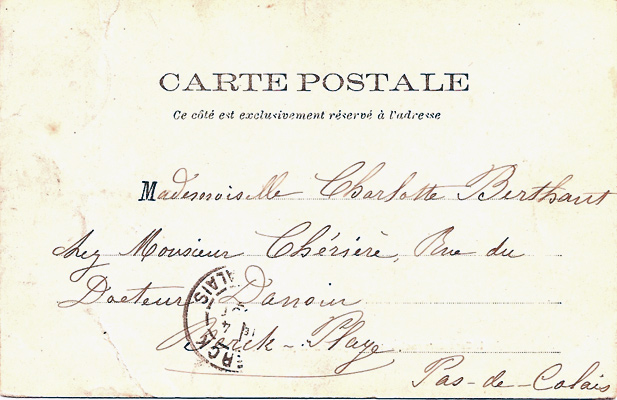 CARTE POSTALE
Ce côté est exclusivement réservé à l'adresse
Mademoiselle Charlotte Berthaut
chez Monsieur Chérière, Rue du
Docteur
Berck-Plage
Pas-de-Calais